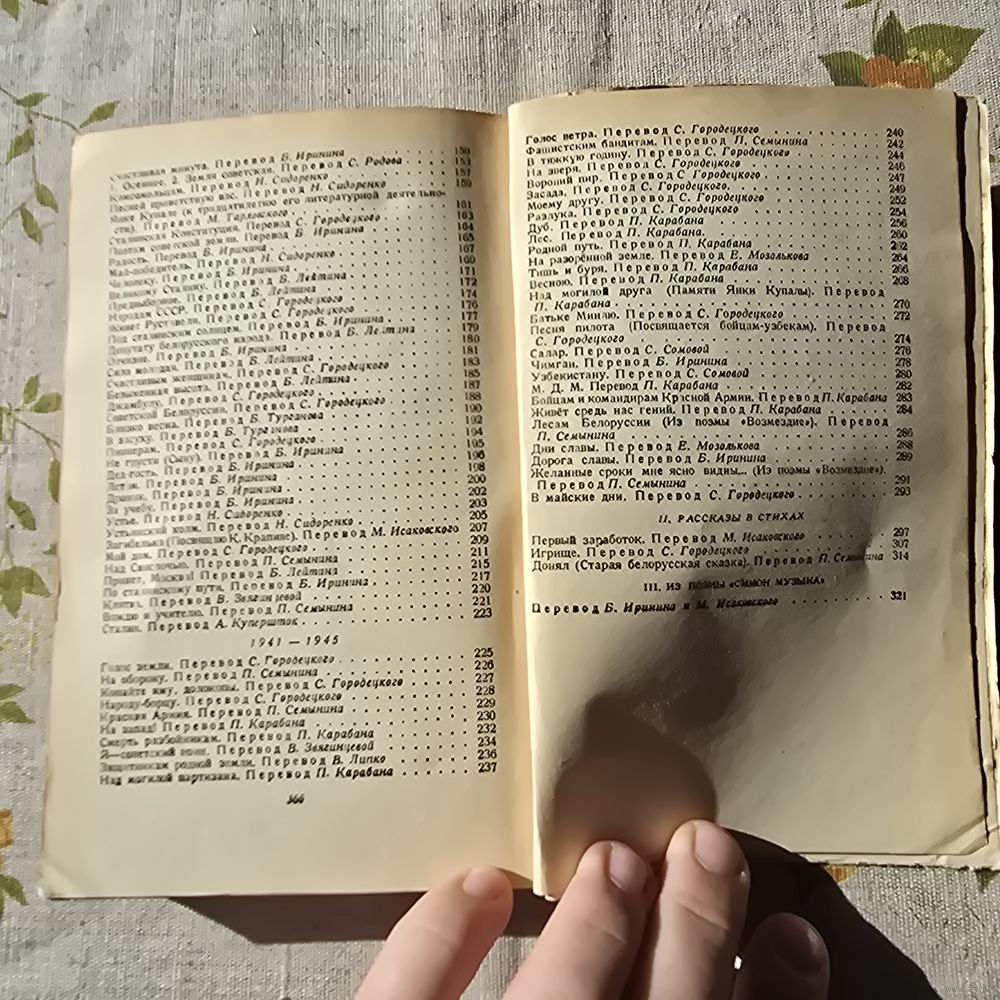 Счастливая минута. Перевод Б. Иринина 150
1. Осеннее. 2. Земля советская. Перевод С. Родова 153
Комсомольцам. Перевод Н. Сидоренко 157
Песней приветствую вас. Перевод Н. Сидоренко 159
Янке Купале (к тридцатилетию его литературной деятельно-
сти). Перевод М. Тарловского 161
Сталинская Конституция. Перевод С. Городецкого 163
Поэтам советской земли. Перевод Б. Иринина 164
Радость. Перевод Б. Иринина 165
Май-победитель. Перевод Н. Сидоренко 167
Человеку. Перевод Б. Иринина 169
Великому Сталину. Перевод Б. Лейтина 171
Предвыборное. Перевод Б. Лейтина 172
Народам СССР. Перевод С. Городецкого 174
Живет Руставели. Перевод С. Городецкого 176
Под сталинским солнцем. Перевод Б. Иринина 177
Депутату белорусского народа. Перевод Б. Лейтина 179
Отчизне. Перевод Б. Иринина 180
Сила молодая. Перевод Б. Лейтина 181
Счастливым женщинам. Перевод С. Городецкого 183
Безыменная высота. Перевод Б. Лейтина 185
Джамбулу. Перевод С. Городецкого 187
Советской Белоруссии. Перевод С. Городецкого 188
Близко весна. Перевод Б. Турганова 190
В засуху. Перевод Б. Турганова 192
Пионерам. Перевод С. Городецкого 194
Не грусти (Сыну). Перевод Б. Иринина 195
Дед-гость. Перевод Б. Иринина 196
Летом. Перевод Б. Иринина 198
Дударь. Перевод Б. Иринина 200
За учебу. Перевод Б. Иринина 202
Устье. Перевод Н. Сидоренко 203
Устьинский холм. Перевод Н. Сидоренко 205
Загибелька (Посвящаю К. Крапиве). Перевод М. Исаковского 207
Мой дом. Перевод С. Городецкого 209
Над Свислочью. Перевод П. Семынина 211
Привет, Москва! Перевод Б. Лейтина 215
По сталинскому пути. Перевод Б. Иринина 217
Клятва. Перевод В. Звягинцевой 220
Вождю и учителю. Перевод П. Семынина 221
Сталин. Перевод А. Куперштох 223
1941 — 1945
Голос земли. Перевод С. Городецкого 225
На оборону. Перевод П. Семынина 226
Копайте яму, долокопы. Перевод С. Городецкого 227
Народу-борцу. Перевод С. Городецкого 228
Красная Армия. Перевод П. Семынина 229
На запад! Перевод П. Карабана 230
Смерть разбойникам. Перевод П. Карабана 232
Я—советский воин. Перевод В. Звягинцевой 234
Защитникам родной земли. Перевод В. Липко 236
Над могилой партизана. Перевод П. Карабана 237
366
Голос ветра. Перевод С. Городецкого 240
Фашистским бандитам. Перевод П. Семынина 242
В тяжкую годину. Перевод С. Городецкого 244
На зверя. Перевод С. Городецкого 246
Вороний пир. Перевод С. Городецкого 247
Засада. Перевод С. Городецкого. 249
Моему другу. Перевод С. Городецкого 252
Разлука. Перевод С. Городецкого 254
Дуб. Перевод П. Карабана 256
Лес. Перевод П. Карабана. 260
Родной путь. Перевод П. Карабана 262
На разорённой земле. Перевод Е. Мозолькова 264
Тишь и буря. Перевод П. Карабана 266
Весною. Перевод П. Карабана 268
Над могилой друга (Памяти Янки Купалы). Перевод
П. Карабана 270
Батьке Минаю. Перевод С. Городецкого 272
Песня пилота (Посвящается бойцам-узбекам). Перевод
С. Городецкого 274
Салар. Перевод С. Сомовой 276
Чимган. Перевод Б. Иринина 278
Узбекистану. Перевод С. Сомовой 280
М. Д. М. Перевод П. Карабана 282
Бойцам и командирам Красной Армии. Перевод П. Карабана 283
Живёт средь нас гений. Перевод П. Карабана 284
Лесам Белоруссии (Из поэмы «Возмездие»). Перевод
П. Семынина 286
Дни славы. Перевод Е. Мозолькова 288
Дорога славы. Перевод Б. Иринина 289
Желанные сроки мне ясно видны... (Из поэмы «Возмездие»).
Перевод П. Семынина 291
В майские дни. Перевод С. Городецкого 293
II. РАССКАЗЫ В СТИХАХ
Первый заработок. Перевод М. Исаковского 297
Игрище. Перевод С. Городецкого 307
Донял (Старая белорусская сказка). Перевод П. Семынина 314
III. ИЗ ПОЭМЫ «СИМОН МУЗЫКА»
Перевод Б. Иринина и М. Исаковского 321